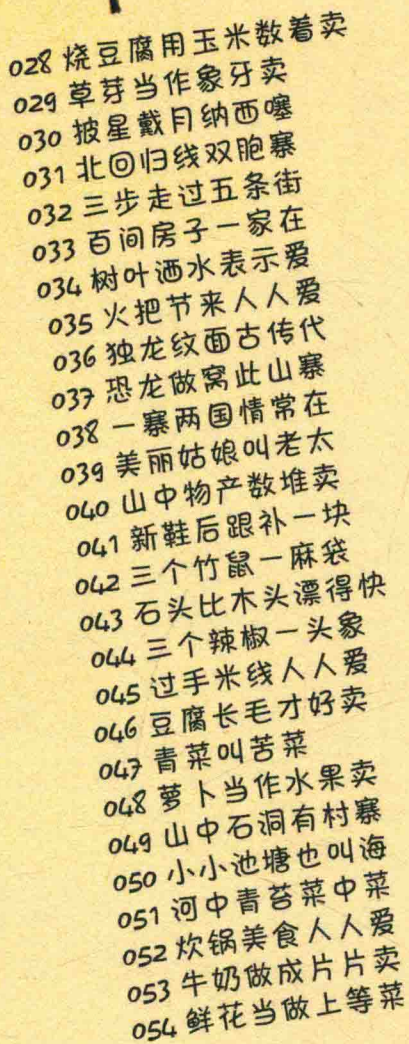 028 烧豆腐用玉米数着卖
029 草芽当作象牙卖
030 披星戴月纳西噻
031 北回归线双胞寨
032 三步走过五条街
033 百间房子一家在
034 树叶洒水表示爱
035 火把节来人人爱
036 独龙纹面古传代
037 恐龙做窝此山寨
038 一寨两国情常在
039 美丽姑娘叫老太
040 山中物产数堆卖
041 新鞋后跟补一块
042 三个竹鼠一麻袋
043 石头比木头漂得快
044 三个辣椒一头象
045 过手米线人人爱
046 豆腐长毛才好卖
047 青菜叫苦菜
048 萝卜当作水果卖
049 山中石洞有村寨
050 小小池塘也叫海
051 河中青苔菜中菜
052 炊锅美食人人爱
053 牛奶做成片片卖
054 鲜花当做上等菜